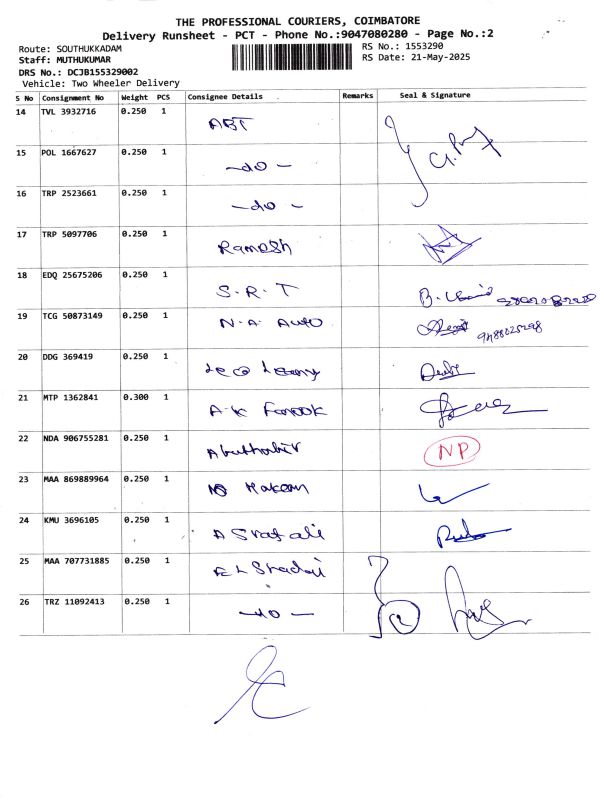 THE PROFESSIONAL COURIERS, COIMBATORE
Delivery Runsheet - PCT - Phone No.:9047080280 - Page No.:2
Route: SOUTHUKKADAM RS No.: 1553290
Staff: MUTHUKUMAR RS Date: 21-May-2025
DRS No.: DCJB155329002
Vehicle: Two Wheeler Delivery
S No Consignment No Weight PCS Consignee Details Remarks Seal & Signature
14 TVL 3932716 0.250 1 ABT
15 POL 1667627 0.250 1 -do-
16 TRP 2523661 0.250 1 -do-
17 TRP 5097706 0.250 1 Ramesh
18 EDQ 25675206 0.250 1 S.R.T
19 TCG 50873149 0.250 1 N.A. Auto
20 DDG 369419 0.250 1
21 MTP 1362841 0.300 1 A.K Farook
22 NDA 906755281 0.250 1 Abuthahir NP
23 MAA 869889964 0.250 1 Hakeem
24 KMU 3696105 0.250 1 Asraf ali
25 MAA 707731885 0.250 1 EL Shadai
26 TRZ 11092413 0.250 1 -do-